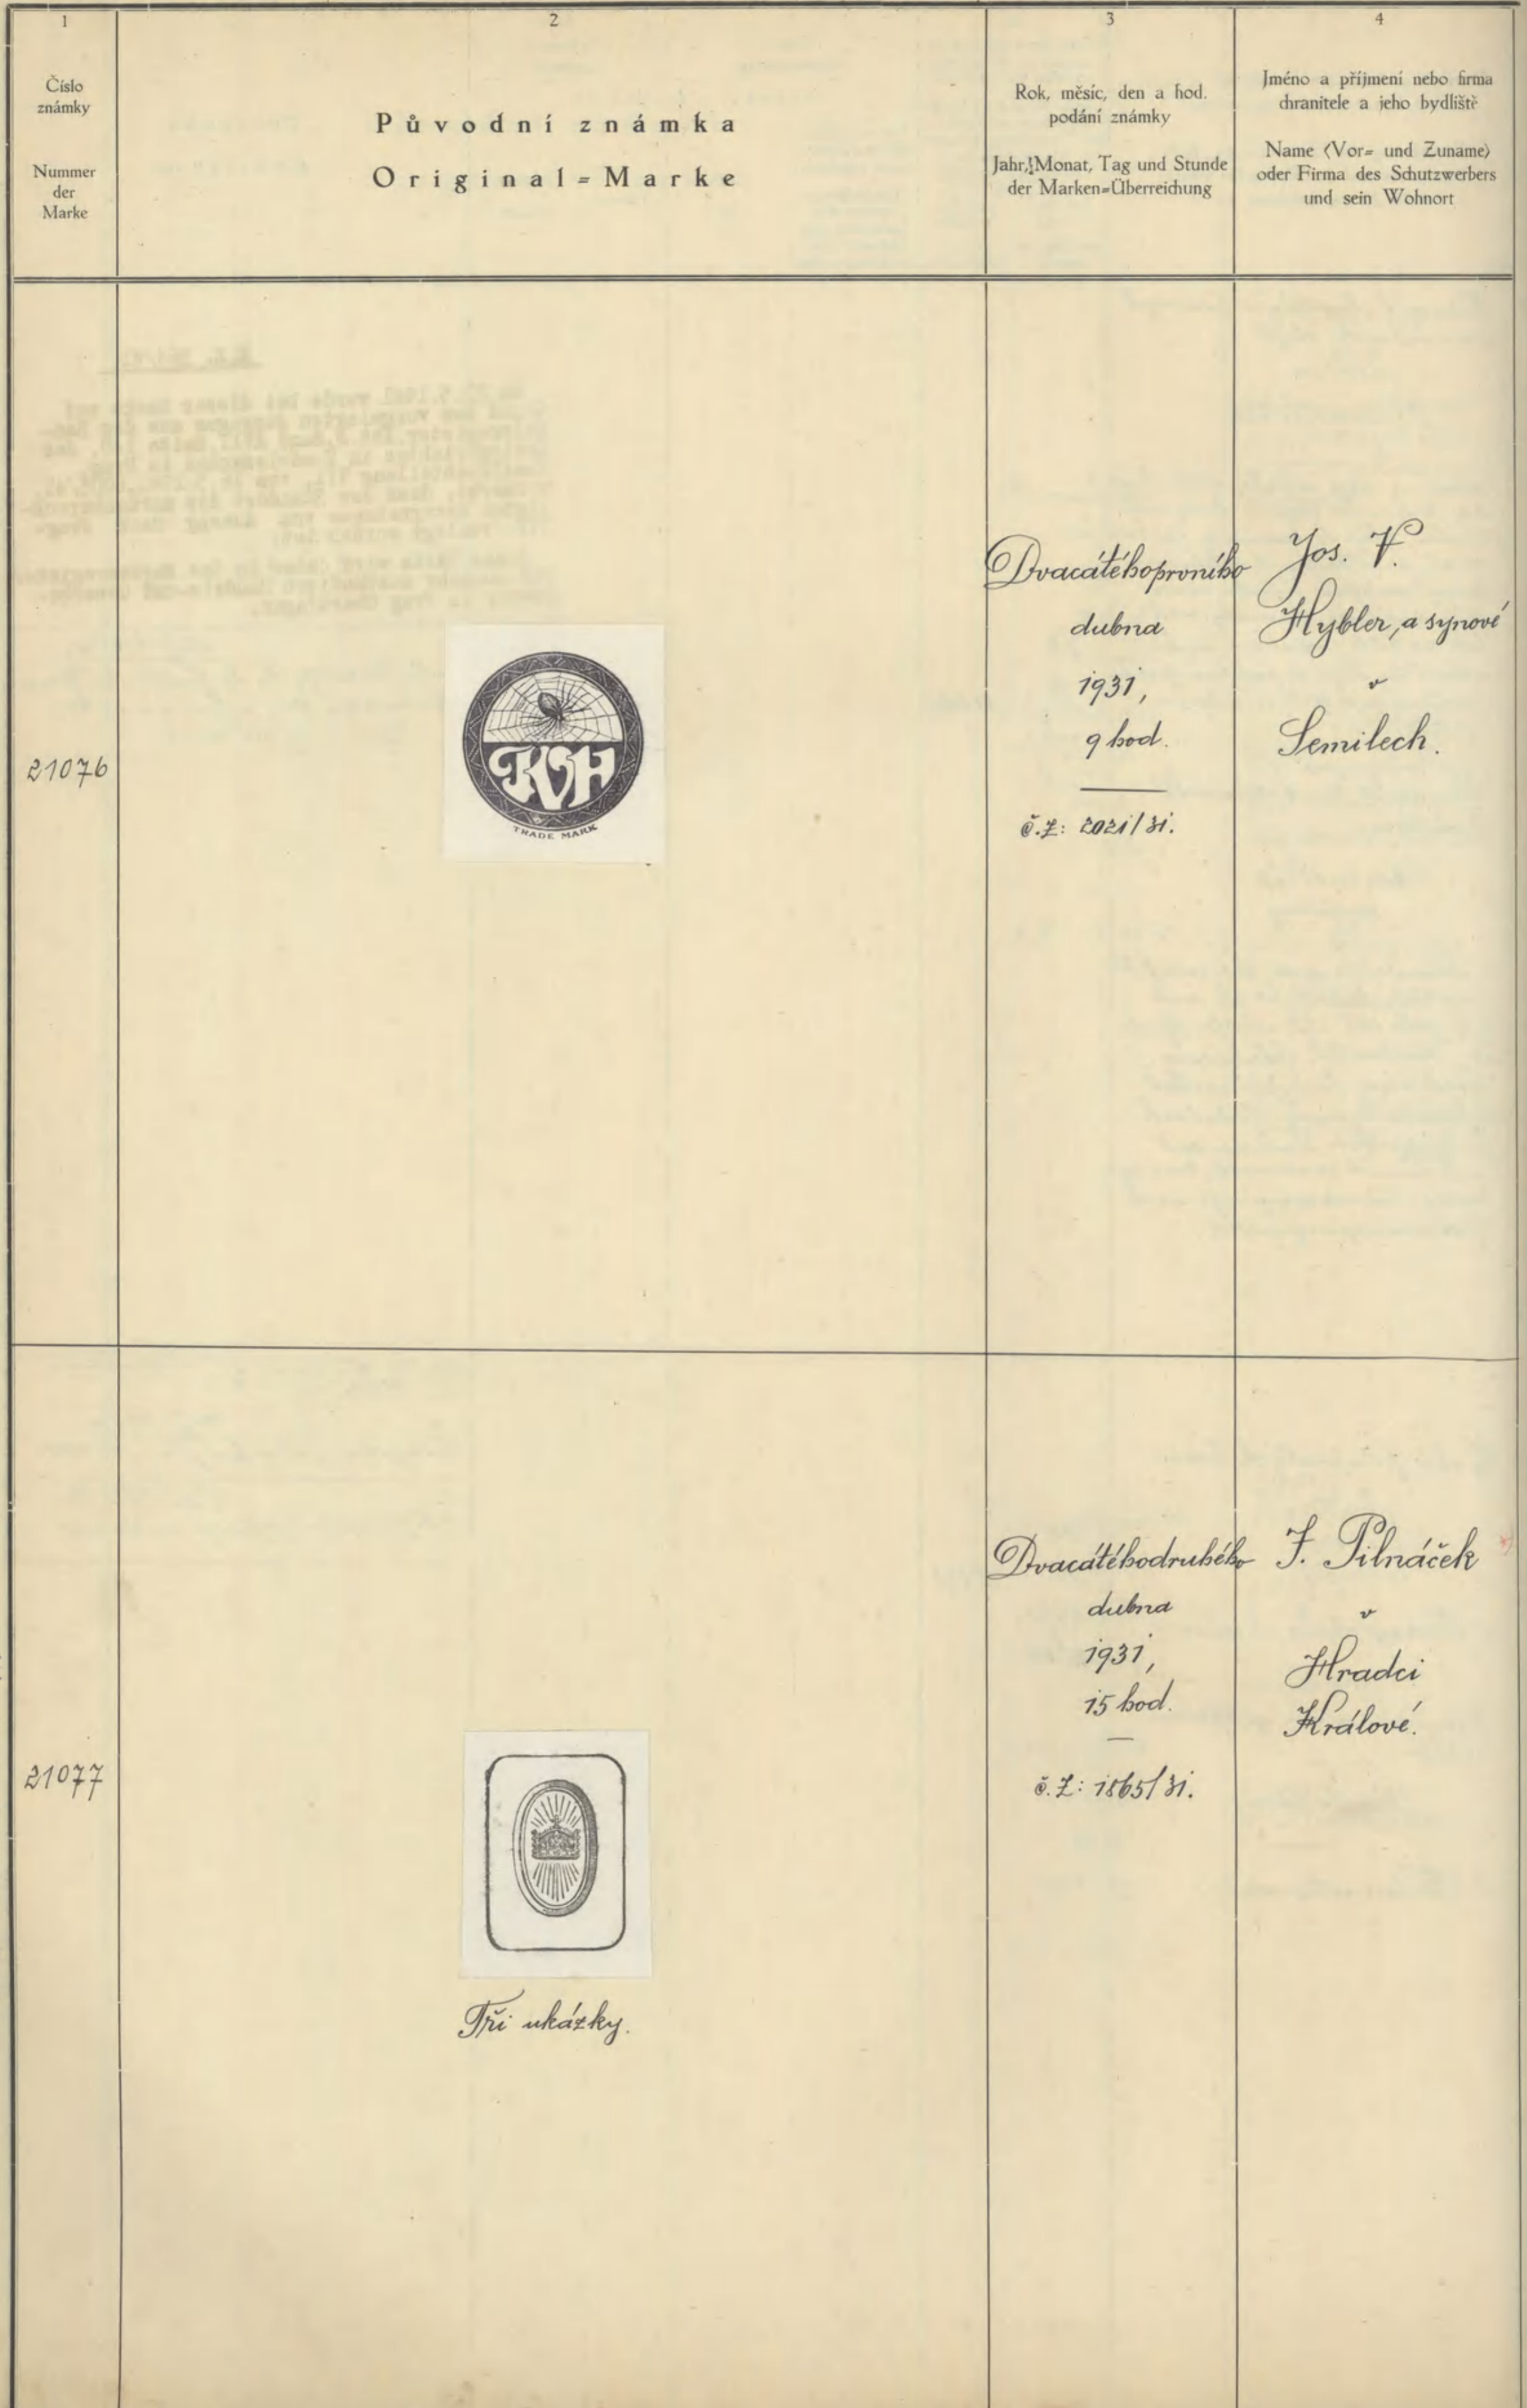 1
Číslo
známky
Nummer
der
Marke
2
Původní známka
Original=Marke
3
Rok, měsíc, den a hod.
podání známky
Jahr, Monat, Tag und Stunde
der Marken=Überreichung
4
Jméno a příjmení nebo firma
chranitele a jeho bydliště
Name (Vor= und Zuname)
oder Firma des Schutzwerbers
und sein Wohnort
21076
TRADE MARK
Dvacátéhoprvního
dubna
1931,
9 hod.
č.ž: 2021/31.
Jos. V.
Hybler, a synové
v
Semilech.
21077
Tři ukázky.
Dvacátéhodruhého
dubna
1931,
15 hod.
č.ž: 1865/31.
F. Pilnáček
v
Hradci
Králové.